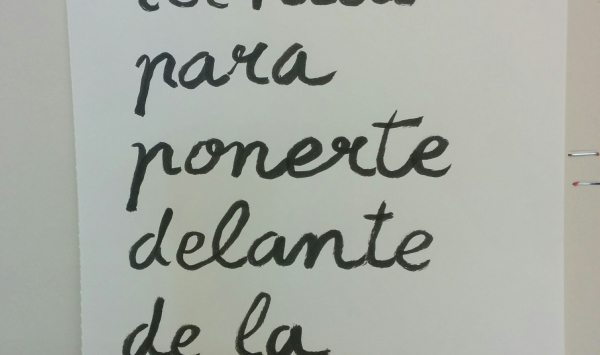 para
ponerte
delante
de la